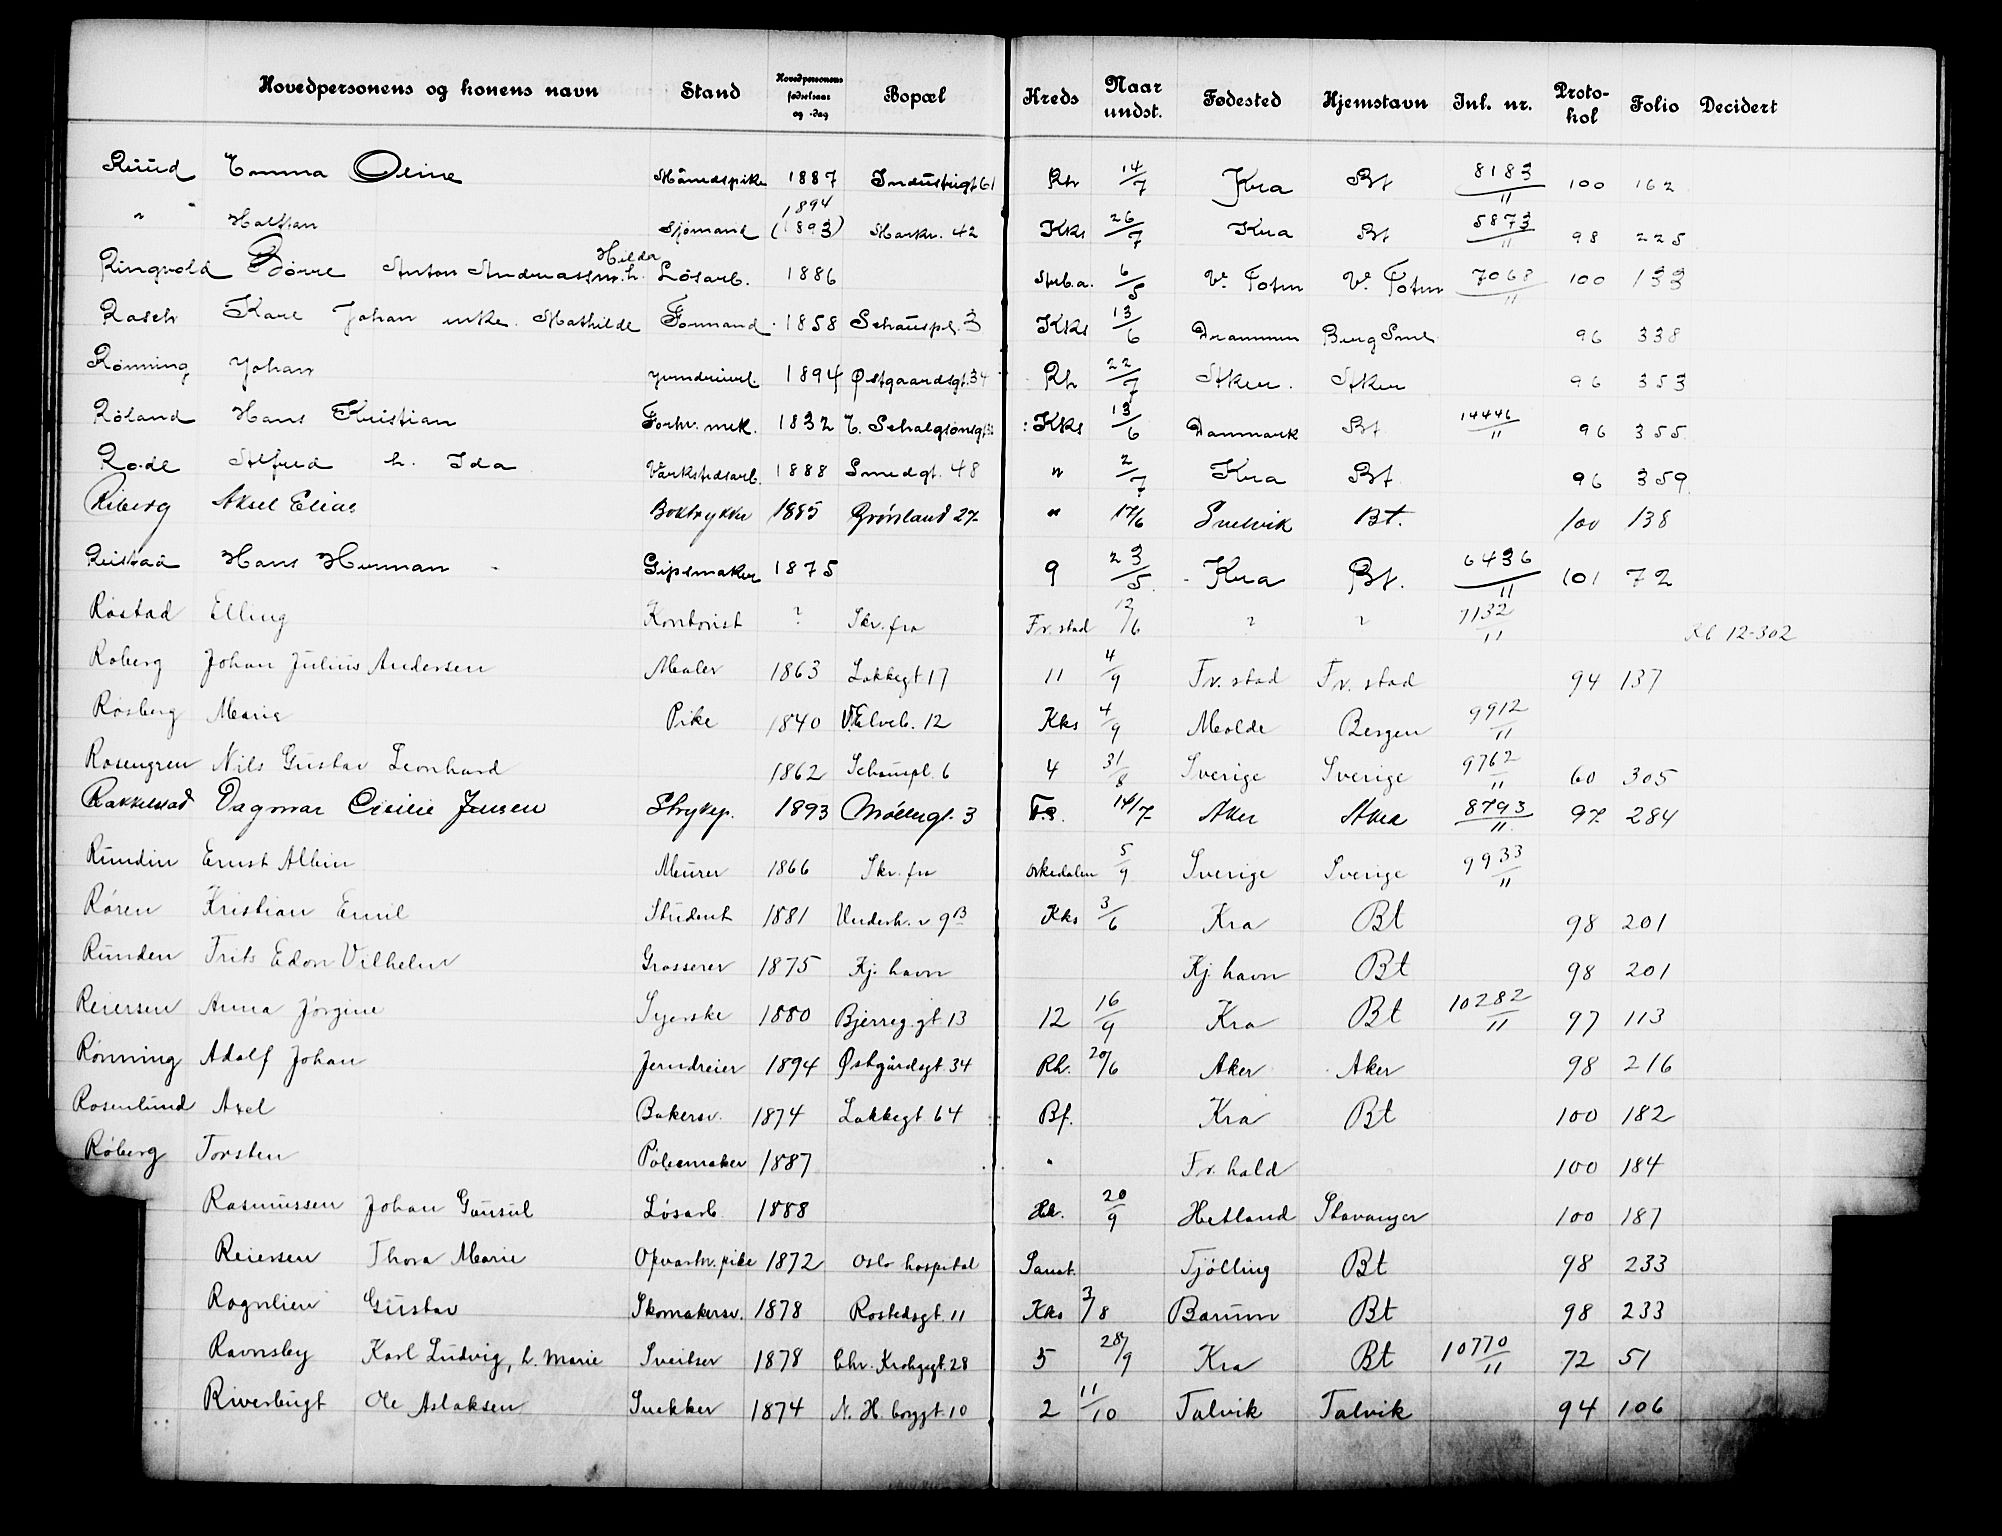 Hovedpersonens og konens navn Stand Hovedpersonens fødselsaar og -dag Bopæl Kreds Naar undst. Fødested Hjemstavn Inl. nr. Protokol Folio Decidert
Ruud Emma Oline 1887 Industrigt 61 Rh 14/7 Kra Bt 8183/11 100 162
" Halfdan Sjømand 1894 (1893) Markv. 42 Kks 26/7 Kra Bt 5873/11 98 225
Ringvold Børre Anton Andreassen h. Hilda Løsarb. 1886 6/5 V. Toten V. Toten 7068/11 100 133
Rasch Karl Johan enke Mathilde Formand 1858 Schouspl. 3 Kks 13/6 Drammen 96 338
Rønning Johan Jerndreierl. 1894 Østgaardsgt. 34 Rh 22/7 Aker Aker 96 353
Røland Hans Kristian Forhv. mek. 1832 Kks 13/6 Danmark Bt 14446/11 96 355
Rode Alfred h. Ida Værkstedsarb. 1888 Smedgt. 48 " 2/7 Kra Bt. 96 359
Riberg Aksel Elias Boktrykker 1885 Grønland 27 " 17/6 Svelvik Bt. 100 138
Reistad Hans Herman Gipsmaker 1875 9 23/5 Kra Bt. 6436/11 101 72
Røstad Elling Kontorist ? Skr. fra Fr. stad 12/6 ? ? 7132/11 12-302
Roberg Johan Julius Andersen Maler 1863 Lakkegt 17 11 4/9 Fr. stad Fr. stad 94 137
Rosberg Marie Pike 1840 V. Elveb. 12 Kks 4/9 Molde Bergen 9912/11
Rosengren Nils Gustav Leonhard 1862 Schouspl. 6 4 31/8 Sverige Sverige 9762/11 60 305
Rakkelstad Dagmar Cicilie Jensen Strykep. 1893 Møllergt. 3 14/7 Aker Aker 8793/11 97 284
Rundin Ernst Albin Murer 1866 Skr. fra Orkedalen 5/9 Sverige Sverige 9933/11
Røren Kristian Emil Student 1881 Underh. v 9 B Kks 3/6 Kra Bt 98 201
Runden Frits Edon Vilhelm Grosserer 1875 Kj. havn Kj havn Bt 98 201
Reiersen Anna Jørgine Syerske 1880 Bjerreg. gt 13 12 16/9 Kra Bt 10282/11 97 113
Rønning Adolf Johan Jerndreier 1894 Østgårdsgt. 34 Rh. 20/6 Aker Aker 98 216
Rosenlund Axel Bakersv. 1874 Lakkegt 64 Bf. Kra Bt 100 182
Røberg Torsten Pølsemaker 1887 " Fr. hald 100 184
Rasmussen Johan Gausul Løsarb 1888 20/9 Hetland Stavanger 100 187
Reiersen Thora Marie Opvartn. pike 1872 Oslo hospital Sanat. Tjølling Bt 98 233
Rognlien Gustav Skomakersv. 1878 Rostedsgt. 11 Kks 3/8 Bærum Bt 98 233
Ravnsby Karl Ludvig, h. Marie Sveitser 1878 Chr. Krohgsgt. 28 5 28/9 Kra Bt 10770/11 72 51
Riverbugt Ole Aslaksen Snekker 1874 N. H. bryggt. 10 2 11/10 Talvik Talvik 94 106